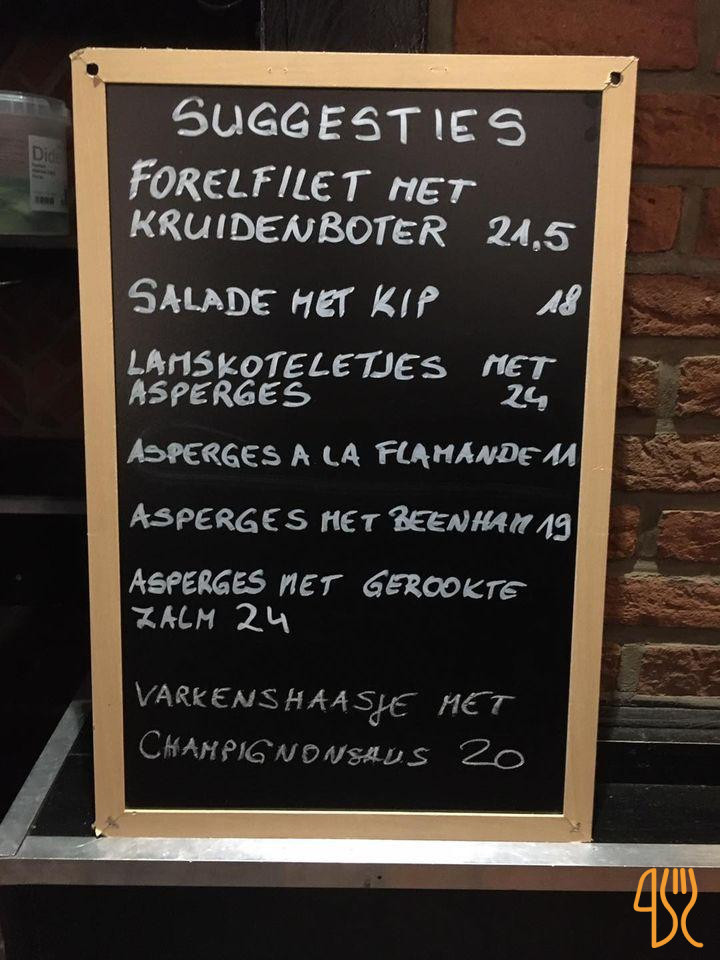 SUGGESTIES
FORELFILET MET
KRUIDENBOTER 21,5
SALADE MET KIP 18
LAMSKOTELETJES MET
ASPERGES 24
ASPERGES A LA FLAMANDE 11
ASPERGES MET BEENHAM 19
ASPERGES MET GEROOKTE
ZALM 24
VARKENSHAASJE MET
CHAMPIGNONSAUS 20